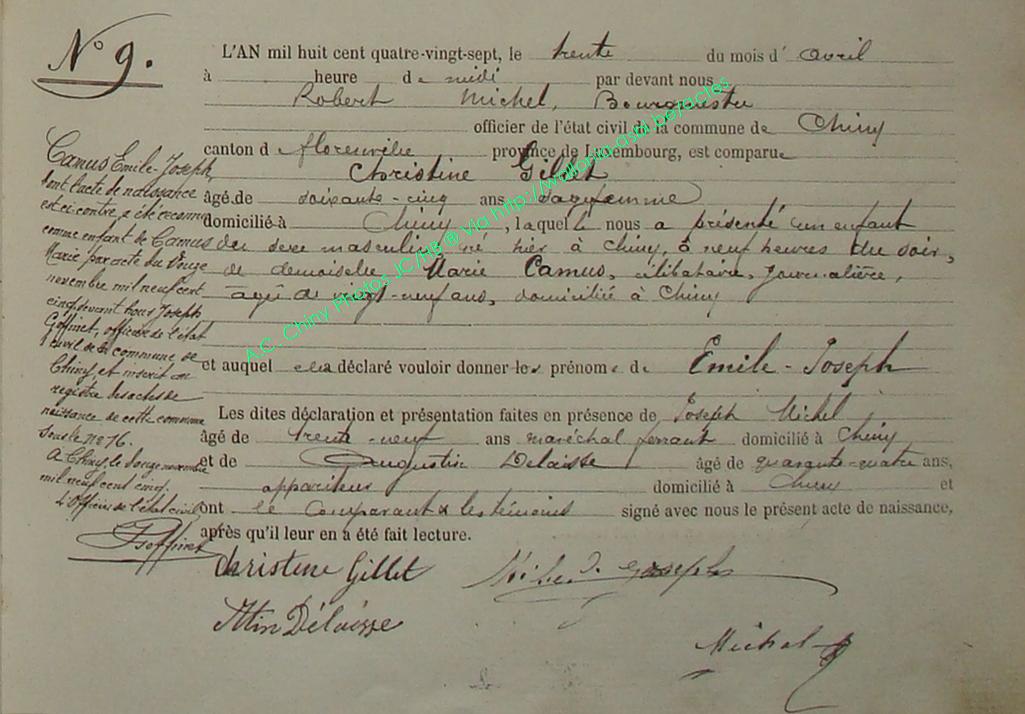 N° 9.
L'AN mil huit cent quatre-vingt-sept, le trente du mois d' avril
à heure de midi par devant nous
Robert Michel, Bourgmestre
officier de l'état civil de la commune de Chiny
canton de florenville province de Luxembourg, est comparue
Christine Gillet
âgé de soixante-cinq ans sagefemme
domicilié à Chiny, laquelle nous a présenté un enfant
du sexe masculin, né hier à Chiny, à neuf heures du soir,
de demoiselle Marie Camus, célibataire, journalière,
âgée de vingt-neuf ans, domiciliée à Chiny
et auquel elle a déclaré vouloir donner les prénoms de Emile-Joseph
Les dites déclaration et présentation faites en présence de Joseph Michel
âgé de trente-neuf ans maréchal ferrant domicilié à Chiny
et de Augustin Delaisse âgé de quarante-quatre ans,
appariteur domicilié à Chiny et
ont le comparant & les témoins signé avec nous le présent acte de naissance,
après qu'il leur en a été fait lecture.
Christine Gillet
Michel J. Joseph
Atin Délaisse
Michel R
Camus Emile-Joseph,
dont l'acte de naissance
est ci-contre, a été reconnu
comme enfant de Camus
Marie par acte du douze
novembre mil neuf cent
cinq devant nous Joseph
Goffinet, officier de l'état
civil de la commune de
Chiny, et inscrit au
registre des actes de
naissance de cette commune
sous le n° 16.
A Chiny, le douze novembre
mil neuf cent cinq.
L'Officier de l'état civil
J Goffinet
A.C. Chiny Photos JC/HB ® Via http://wallonia-asbl.be/actes